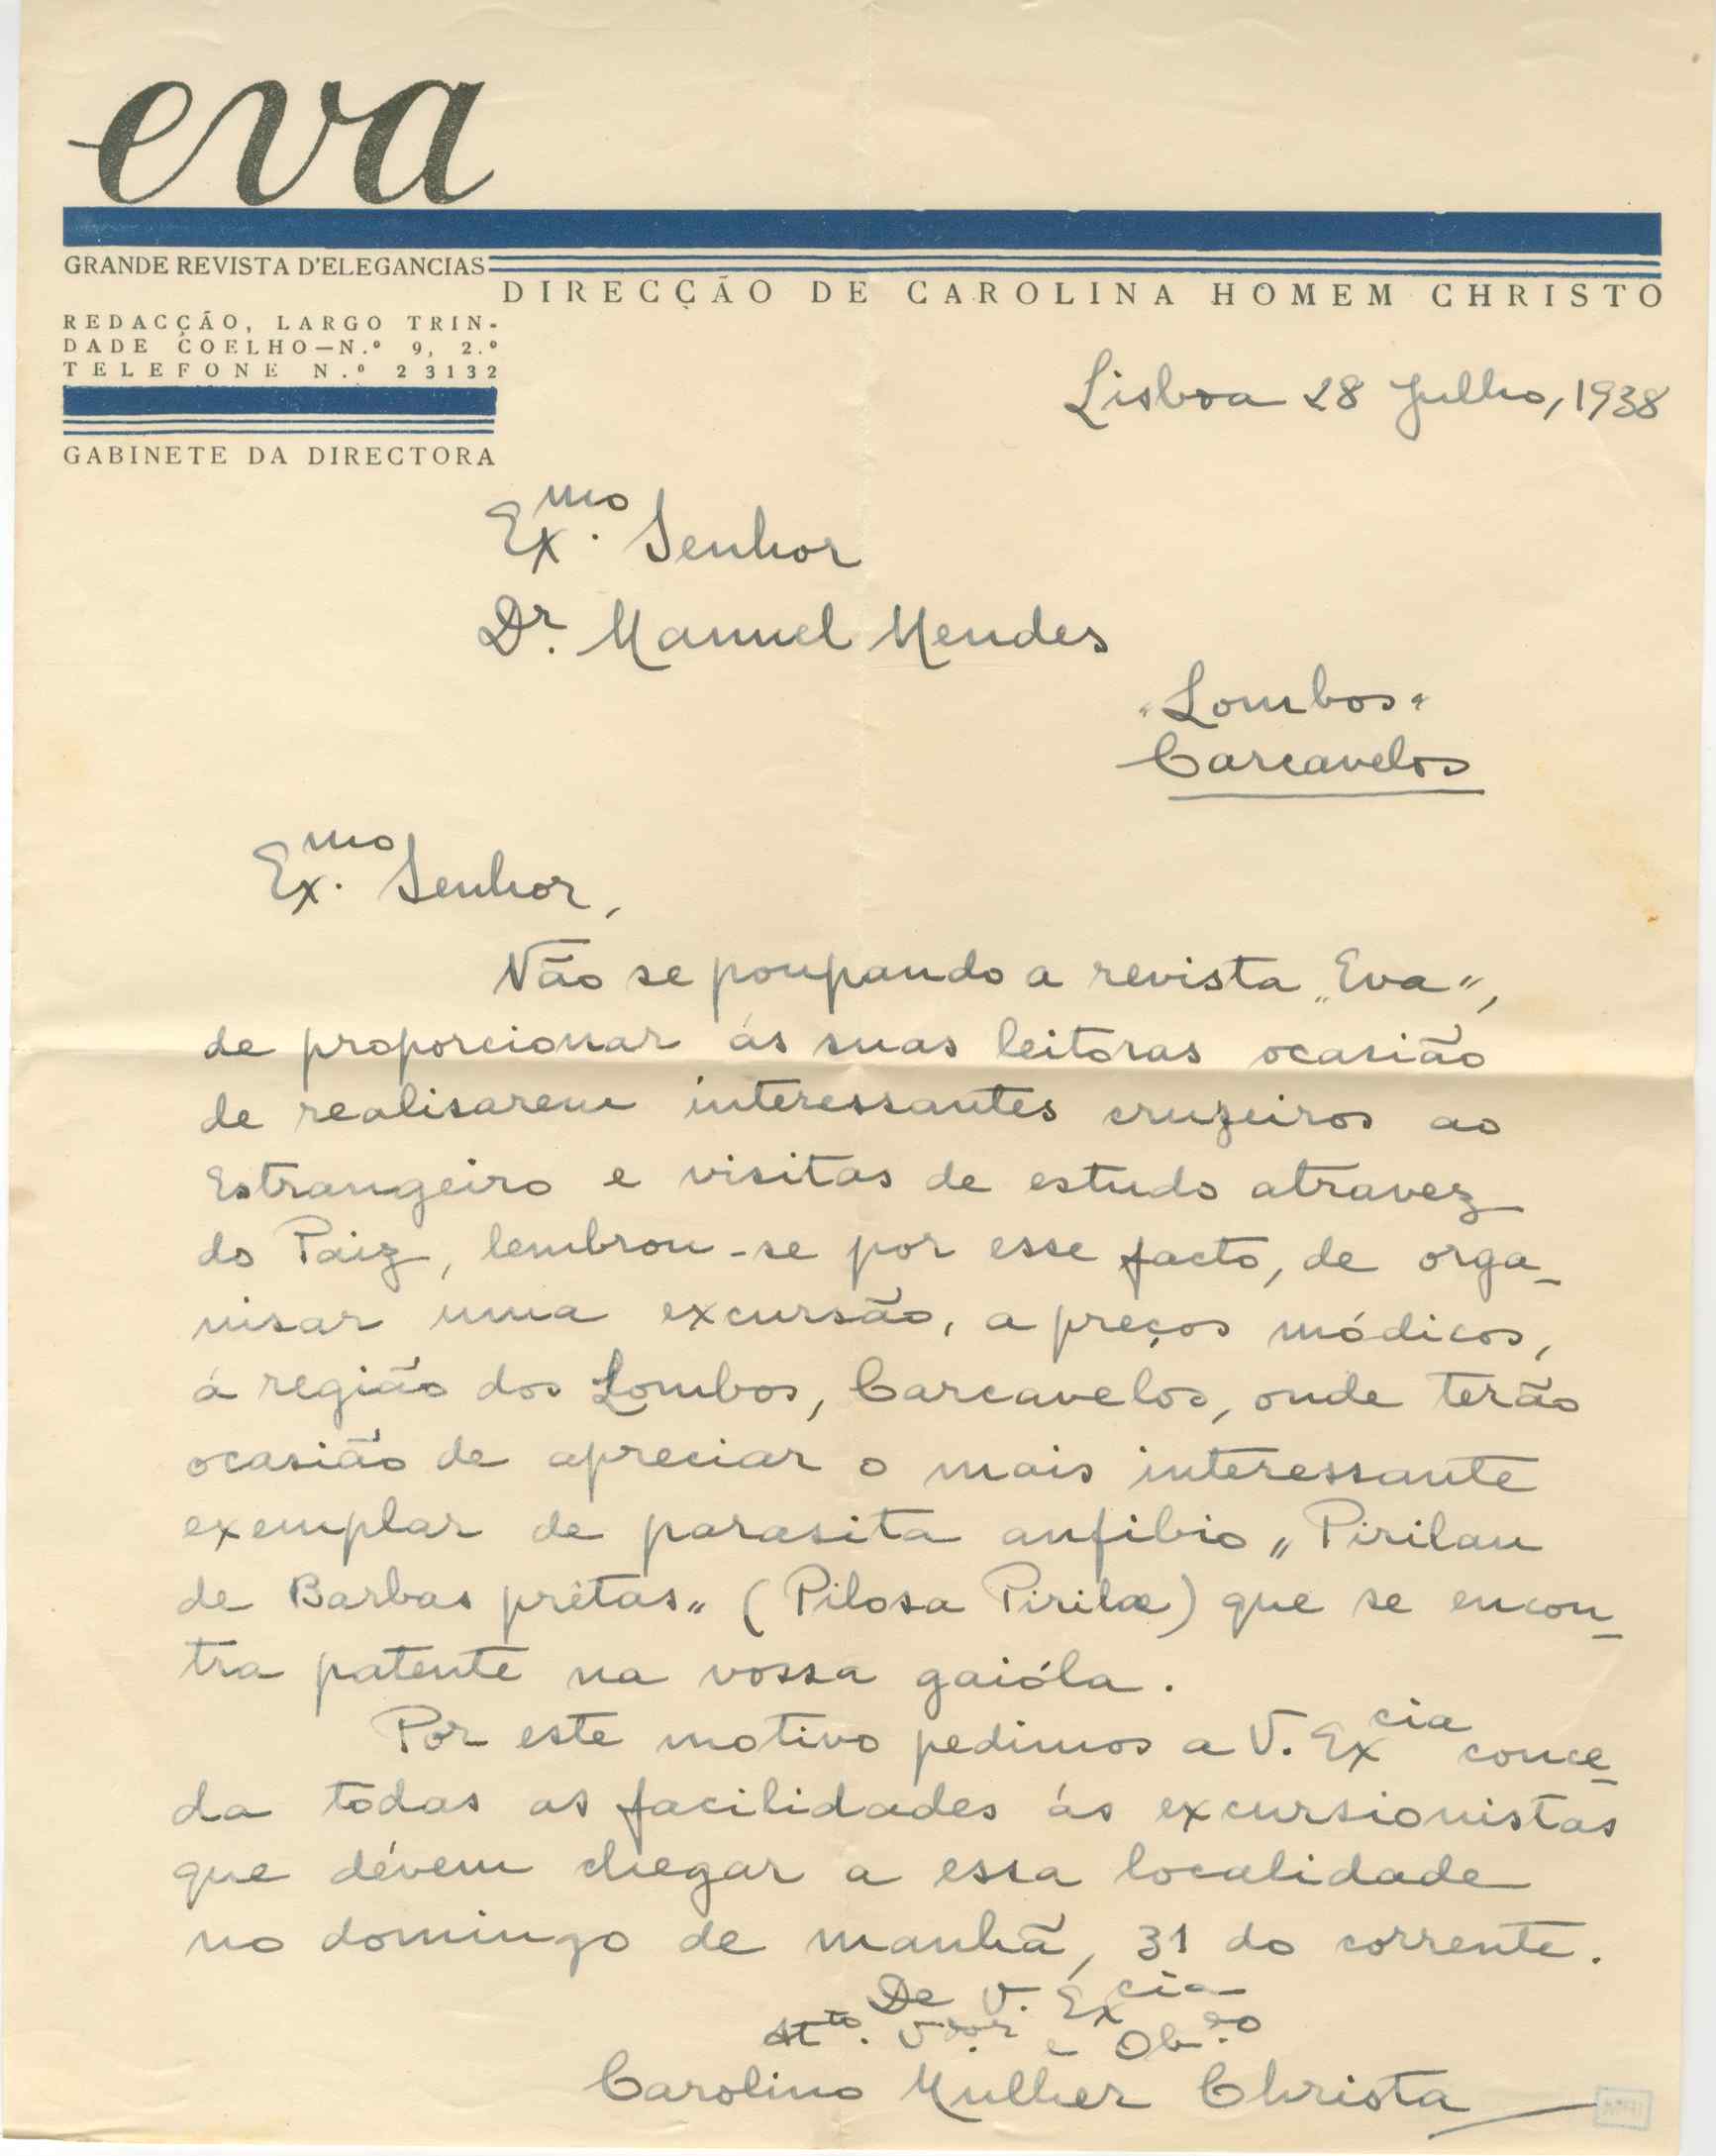 eva
GRANDE REVISTA D'ELEGANCIAS
DIRECÇÃO DE CAROLINA HOMEM CHRISTO
REDACÇÃO, LARGO TRIN-
DADE COELHO—N.º 9, 2.º
TELEFONE N.º 23132
GABINETE DA DIRECTORA
Lisboa 28 Julho, 1938
Ex.mo Senhor
Dr. Manuel Mendes
"Lombos"
Carcavelos
Ex.mo Senhor,
Não se poupando a revista "Eva",
de proporcionar ás suas leitoras ocasião
de realisarem interessantes cruzeiros ao
Estrangeiro e visitas de estudo atravez
do Paiz, lembrou-se por esse facto, de orga-
nisar uma excursão, a preços módicos,
á região dos Lombos, Carcavelos, onde terão
ocasião de apreciar o mais interessante
exemplar de parasita anfibio "Pirilau
de Barbas prêtas" (Pilosa Pirilæ) que se encon-
tra patente na vossa gaióla.
Por este motivo pedimos a V. Excia conce-
da todas as facilidades ás excursionistas
que dévem chegar a essa localidade
no domingo de manhã, 31 do corrente.
De V. Excia
Att.to V.dor e Ob.do
Carolino Mulher Christa